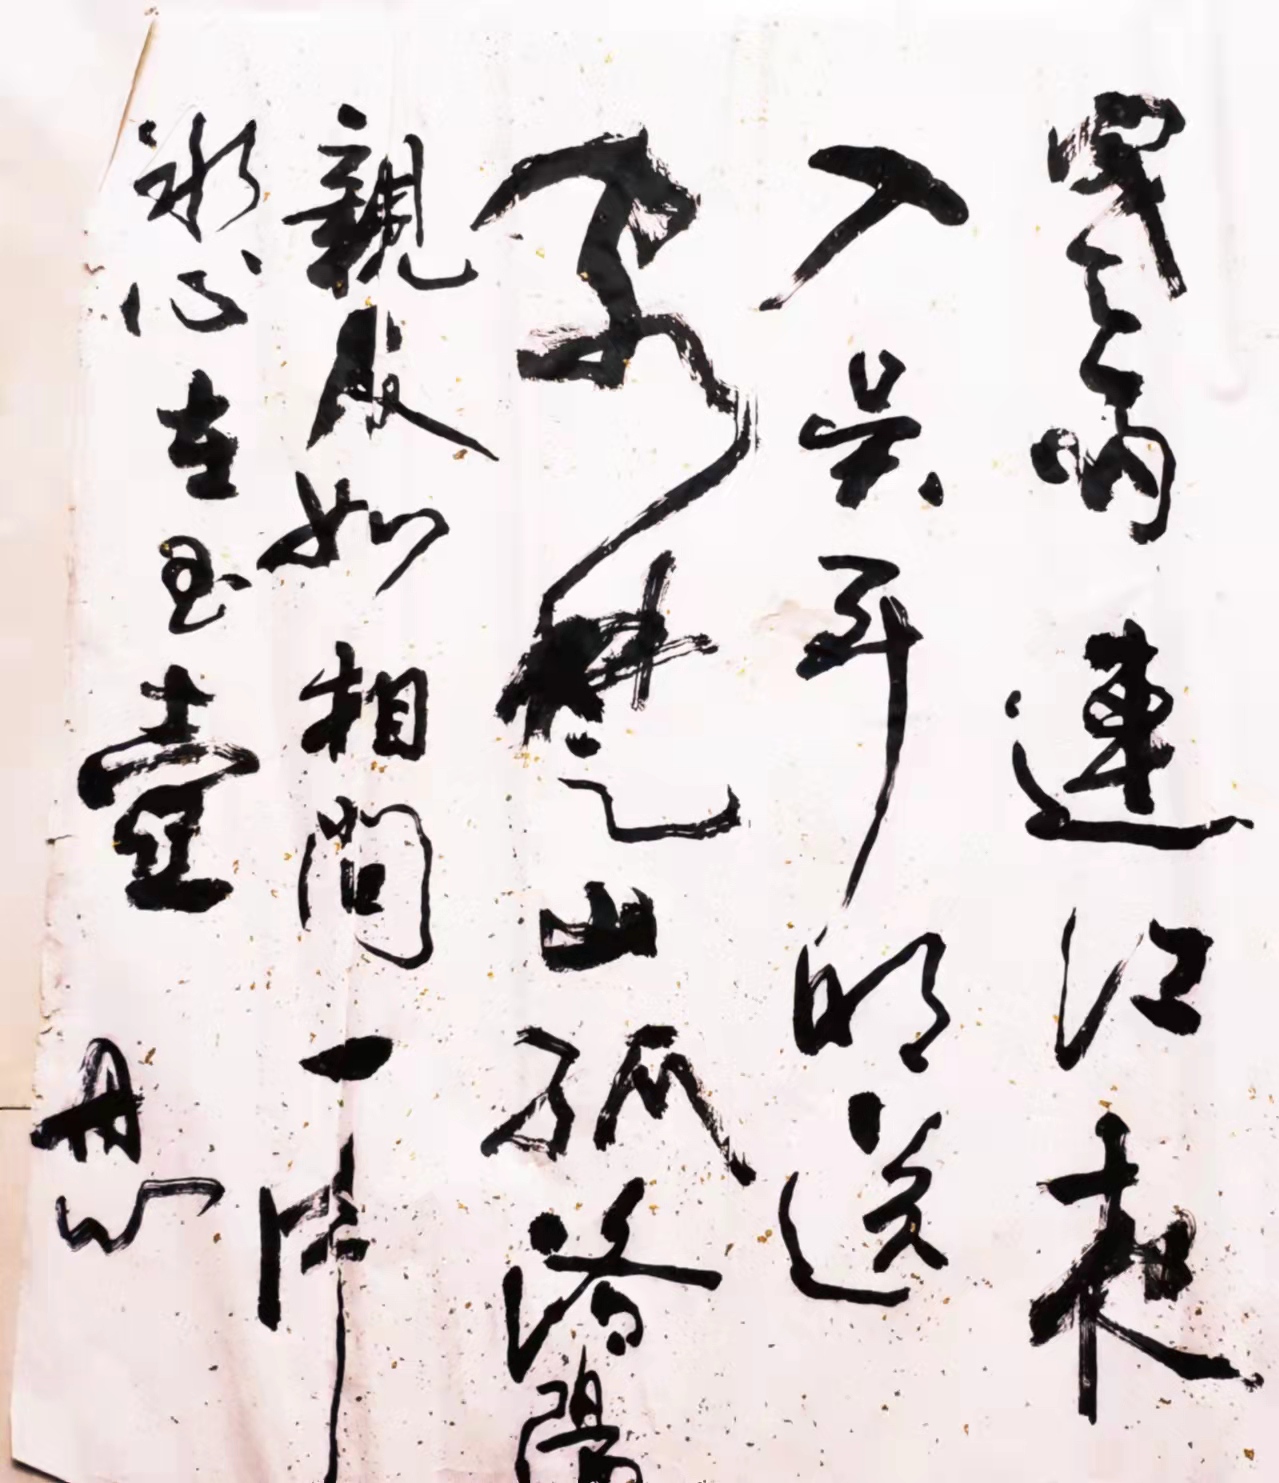 寒雨連江夜
入吴平明送
客楚山孤洛陽
親友如相問一片
冰心在玉壺
丹山